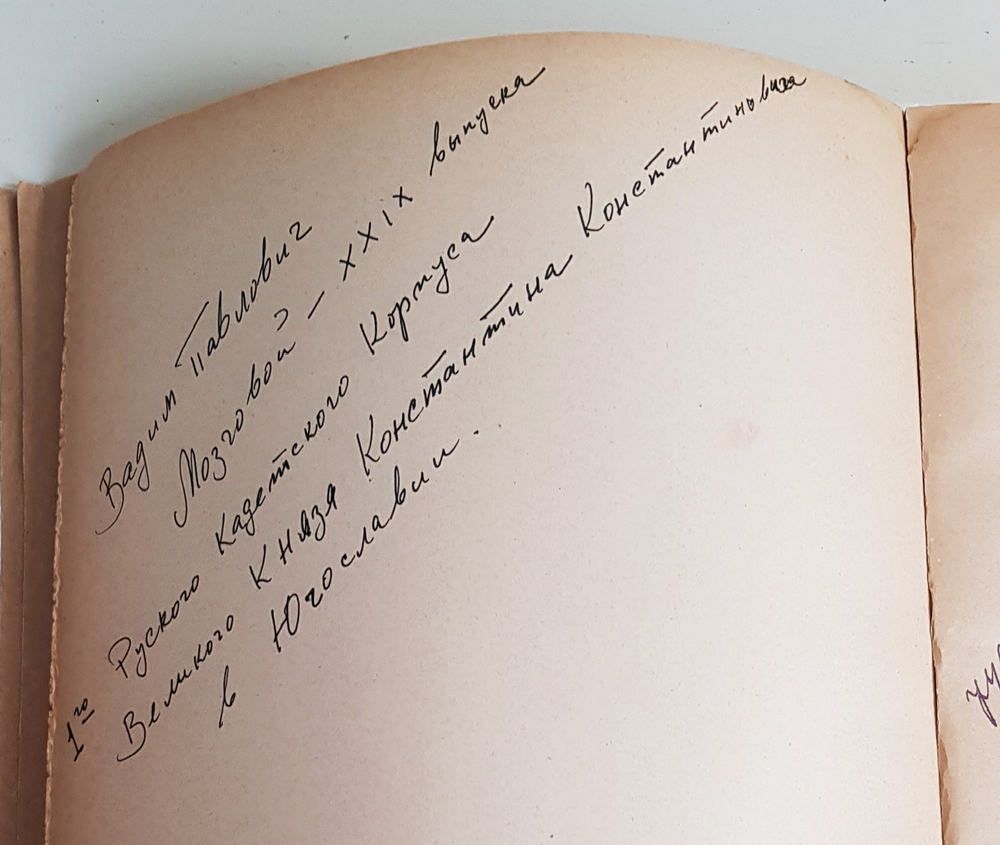 Вадим Павлович
Мозговой – XXIX выпуска
1го Руского Кадетского Корпуса
Великого Князя Константина Константиновича
в Югославии.